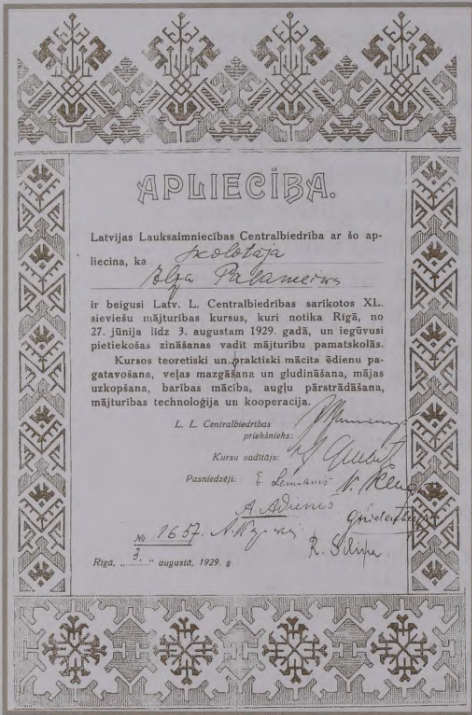 APLIECĪBA.
Latvijas Lauksaimniecības Centralbiedrība ar šo ap-
liecina, ka skolotāja
ir beigusi Latv. L. Centralbiedrības sarīkotos XL.
sieviešu mājturības kursus, kuri notika Rīgā, no
27. jūnija līdz 3. augustam 1929. gadā, un ieguvusi
pietiekošas zināšanas vadīt mājturību pamatskolās.
Kursos teoretiski un praktiski mācīta ēdienu pa-
gatavošana, veļas mazgāšana un gludināšana, mājas
uzkopšana, barības mācība, augļu pārstrādāšana,
mājturības technoloģija un kooperacija.
L. L. Centralbiedrības
priekšnieks:
Kursu vadītājs:
Pasniedzēji:
№ 1657.
Rīgā, „3.“ augustā, 1929. g